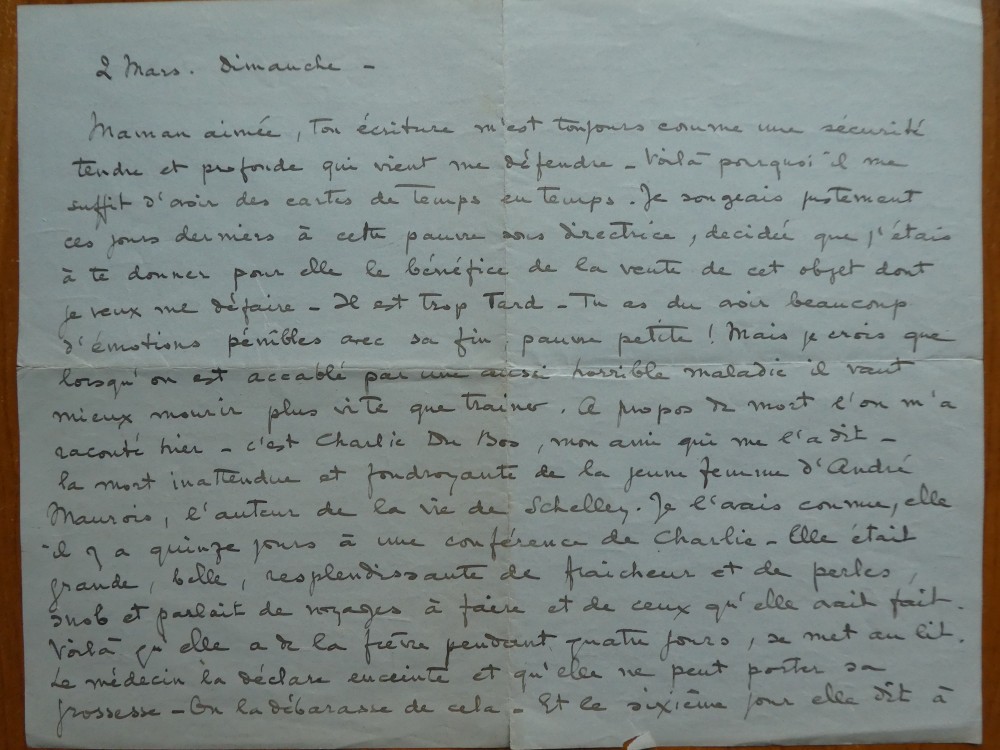 2 Mars. Dimanche –
Maman aimée, ton écriture m'est toujours comme une sécurité
tendre et profonde qui vient me défendre – Voilà pourquoi il me
suffit d'avoir des cartes de temps en temps. Je songeais justement
ces jours derniers à cette pauvre sous directrice, decideé que j'étais
à te donner pour elle le bénéfice de la vente de cet objet dont
je veux me défaire – Il est trop Tard – Tu as du avoir beaucoup
d'émotions pénibles avec sa fin, pauvre petite ! Mais je crois que
lorsqu'on est accablé par une aussi horrible maladie il vaut
mieux mourir plus vite que trainer. A propos de mort l'on m'a
raconté hier – c'est Charlie Du Bos, mon ami qui me l'a dit –
la mort inattendue et foudroyante de la jeune femme d'André
Maurois, l'auteur de la vie de Schelley. Je l'avais connue, elle
il y a quinze jours à une conférence de Charlie – Elle était
grande, belle, resplendissante de fraicheur et de perles,
snob et parlait de voyages à faire et de ceux qu'elle avait fait.
Voilà qu'elle a de la fièvre pendant quatre jours, se met au lit.
Le médecin la déclare enceinte et qu'elle ne peut porter sa
grossesse – On la débarasse de cela – Et le sixième jour elle dit à